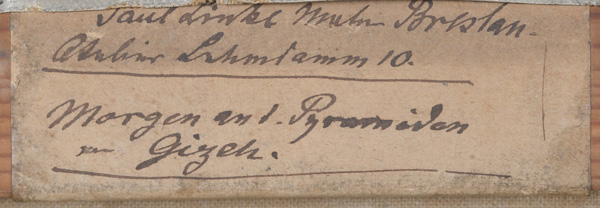 Paul Linke Maler Breslau.
Atelier Lehmdamm 10.
Morgen an d. Pyramiden
von Gizeh.